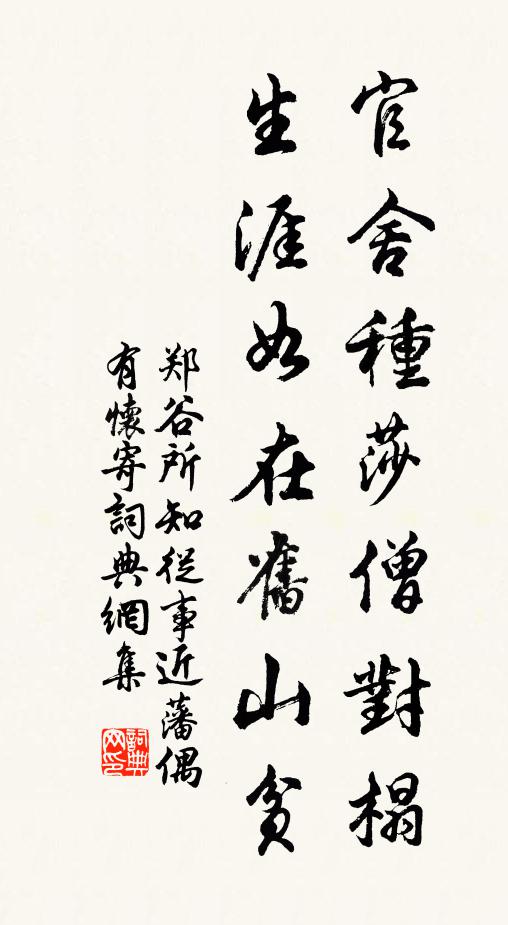 官舍種莎僧對榻
生涯如在舊山貧
郑谷所知從事近藩偶
有懷寄詞典網集
詞典网印